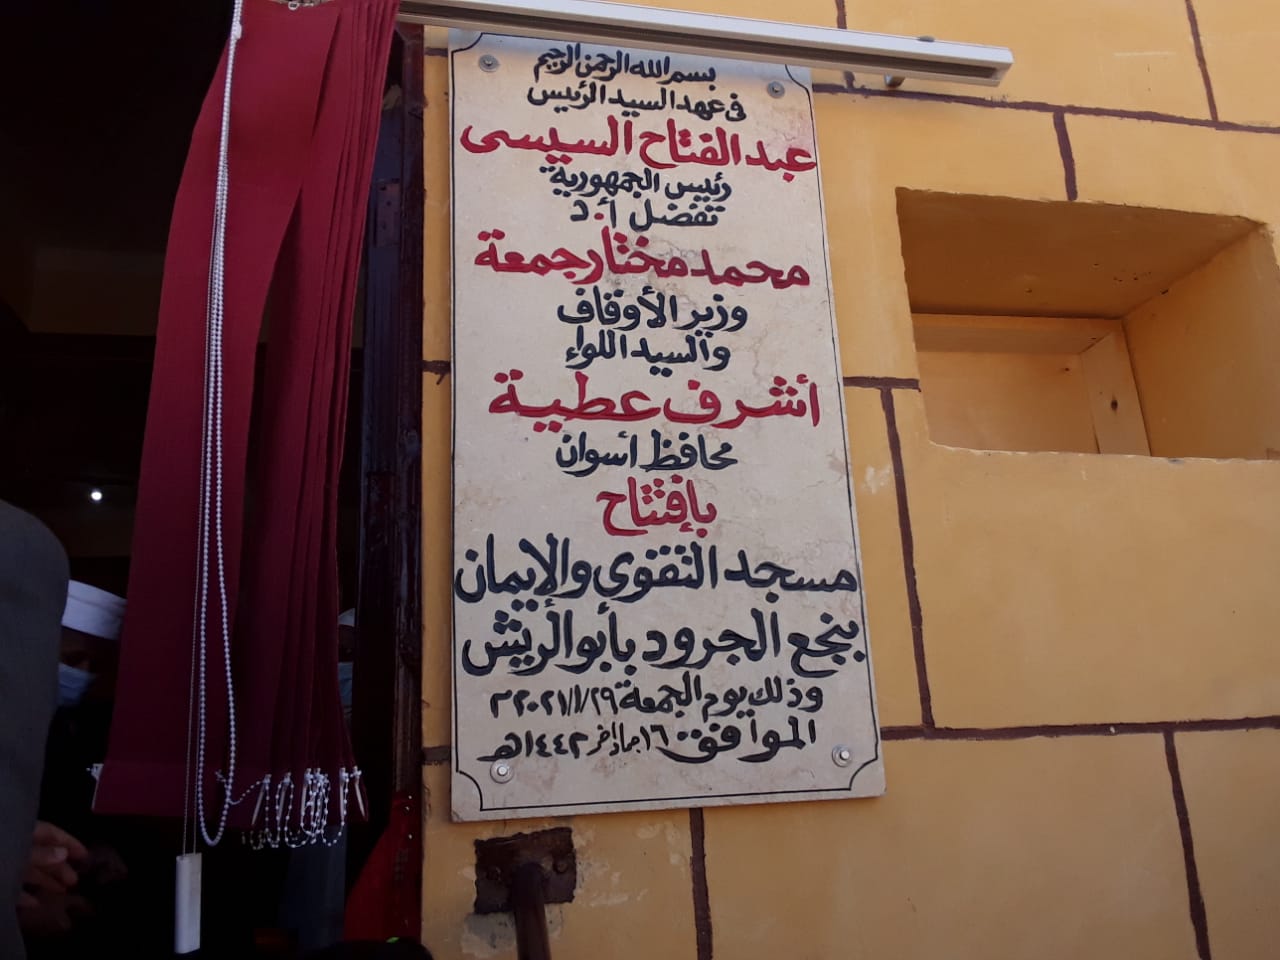 بسم الله الرحمن الرحيم
فى عهد السيد الرئيس
عبد الفتاح السيسى
رئيس الجمهورية
تفضل أ.د
محمد مختار جمعة
وزير الأوقاف
والسيد اللواء
أشرف عطية
محافظ أسوان
بإفتتاح
مسجد التقوى والإيمان
بنجع الجرود بأبوالريش
وذلك يوم الجمعة ٢٠٢١/١/٢٩م
الموافق ١٦ جماد آخر ١٤٤٢هـ